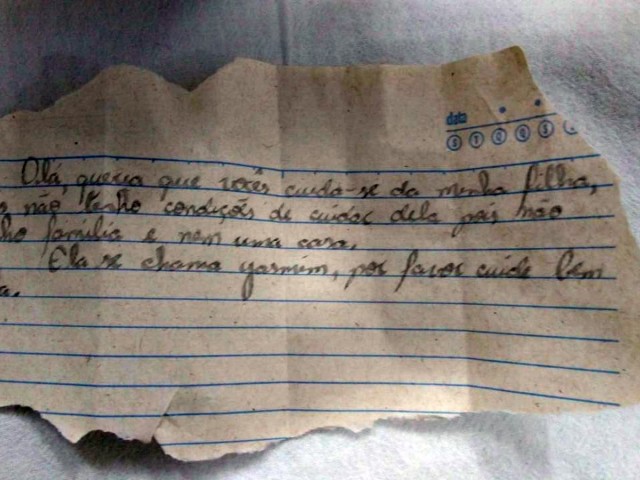 data
S T Q Q S
Olá, queria que vocês cuida-se da minha filha,
não tenho condições de cuidar dela pois não
ho família e nem uma casa.
Ela se chama yasmim, por favor cuide bem
a.